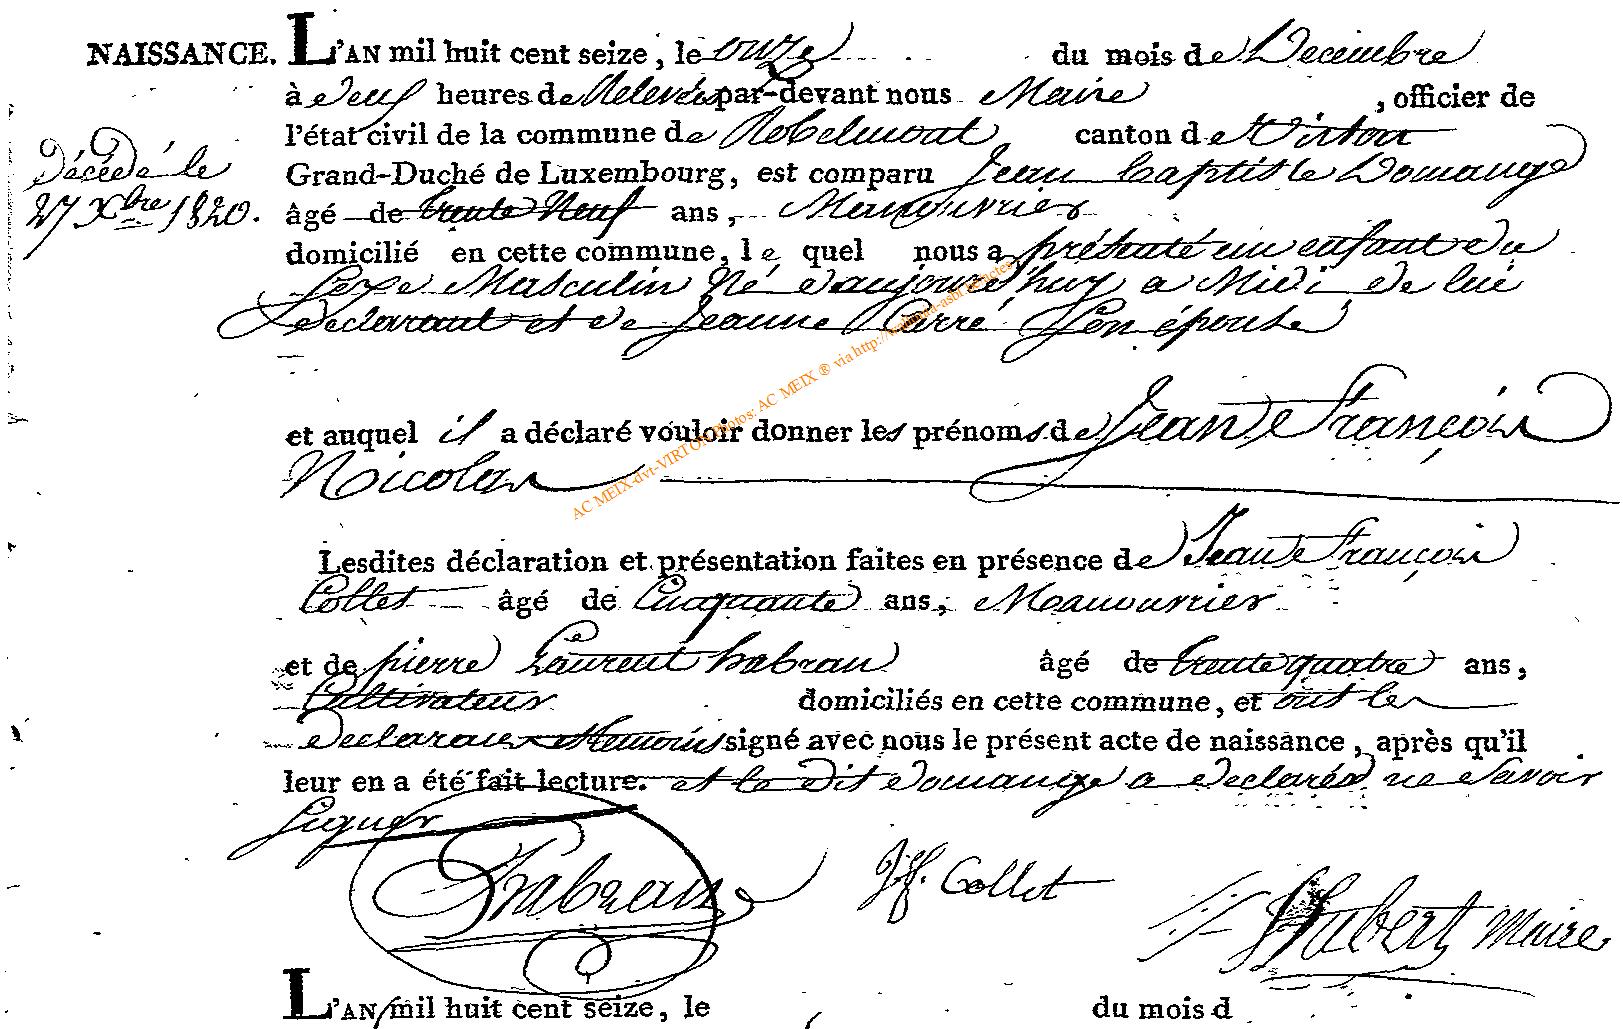 NAISSANCE. L'AN mil huit cent seize, le onze du mois de Decembre
à Neuf heures de Relevée par-devant nous Maire, officier de
l'état civil de la commune de Robelmont canton de Virton
Décédé le
27 Xbre 1820.
Grand-Duché de Luxembourg, est comparu Jean baptiste Domange
âgé de trente Neuf ans, Manouvrier
domicilié en cette commune, le quel nous a présenté un enfant du
Sexe Masculin Né d'aujourd'huy a Midi de lui
declarant et de Jeanne Carré Son épouse
et auquel il a déclaré vouloir donner les prénoms de Jean François
Nicolas
Lesdites déclaration et présentation faites en présence de Jean François
Collet âgé de Cinquante ans, Manouvrier
et de pierre Laurent habran âgé de trente quatre ans,
Cultivateur domiciliés en cette commune, et ont les
Declarans temoins signé avec nous le présent acte de naissance, après qu'il
leur en a été fait lecture. et le dit domange a declaré ne Savoir
Signer
Habran
J.f. Collet
Hubert Maire
L'AN mil huit cent seize, le du mois d
AC MEIX-dvt-VIRTON Photos: AC MEIX ® via http://